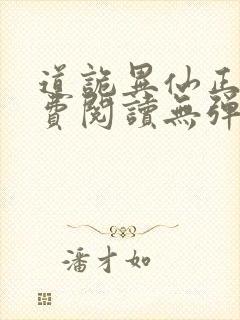 道詭異仙正
費閱讀無彈
潘才如